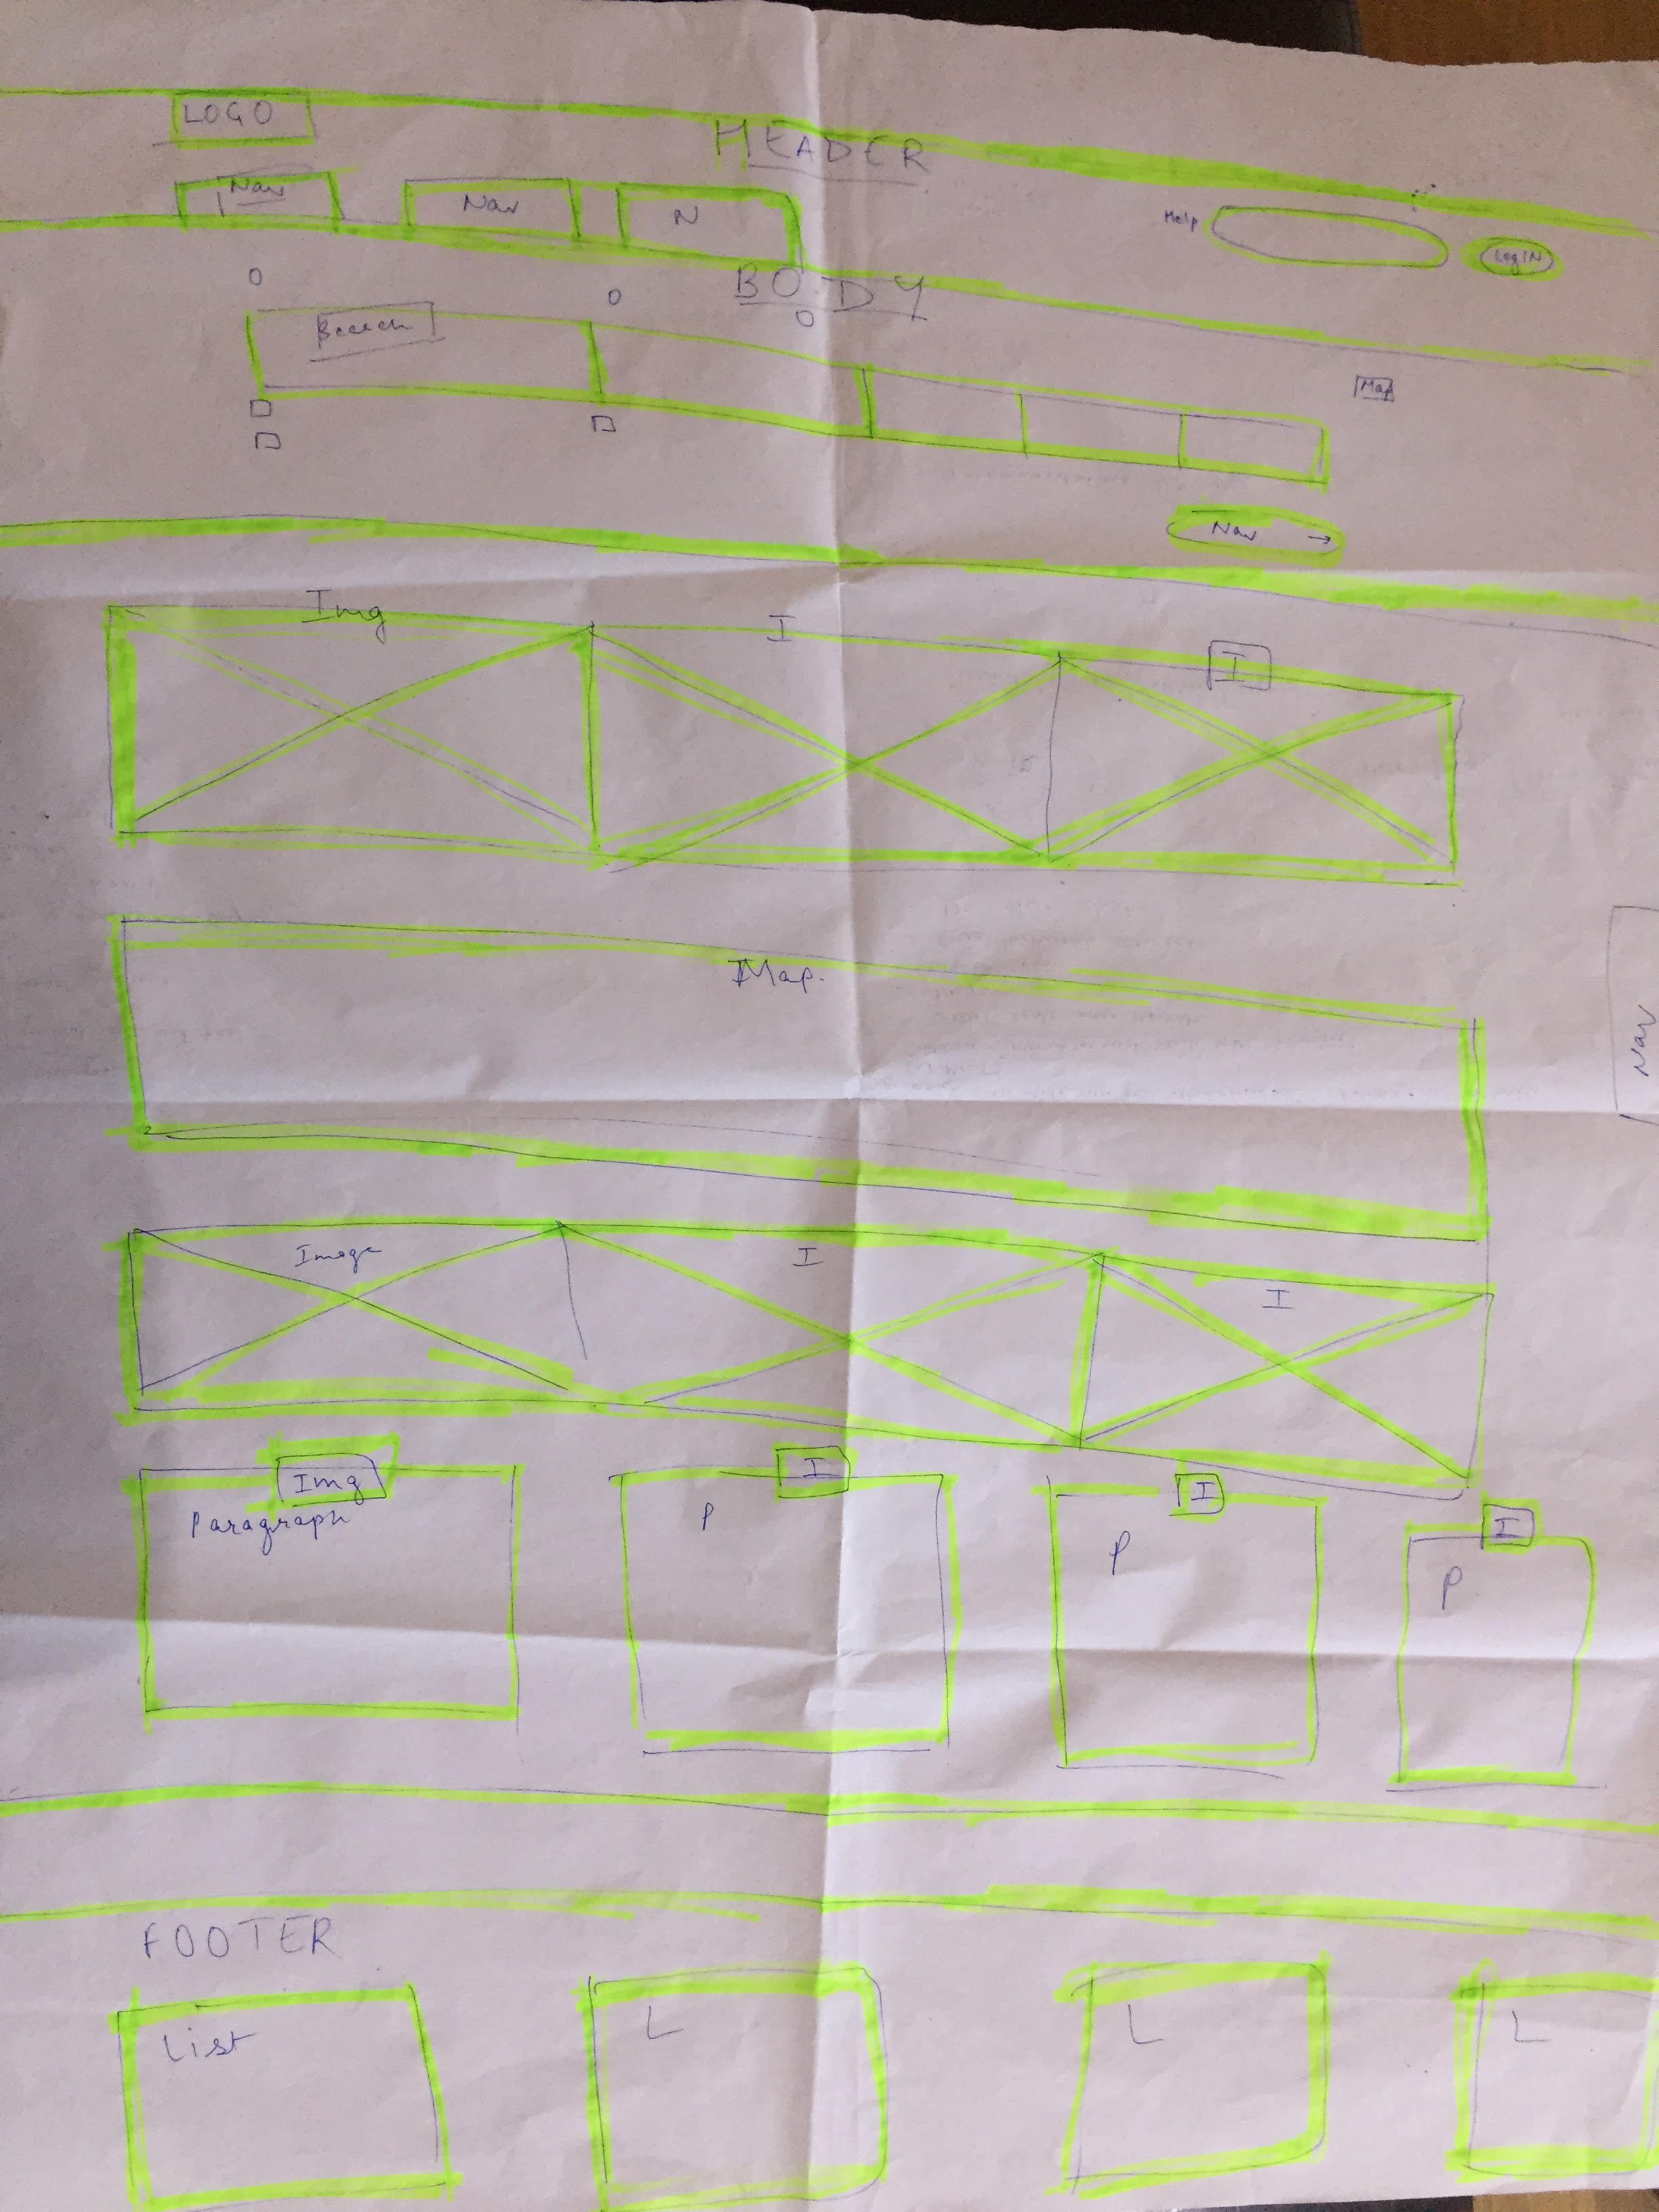 LOGO
HEADER
Nav Nav N
Help LogIN
BODY
Map
Nav →
Img I I
Map.
Nav
Image I I
Img I I I
Paragraph P P P
FOOTER
List L L L